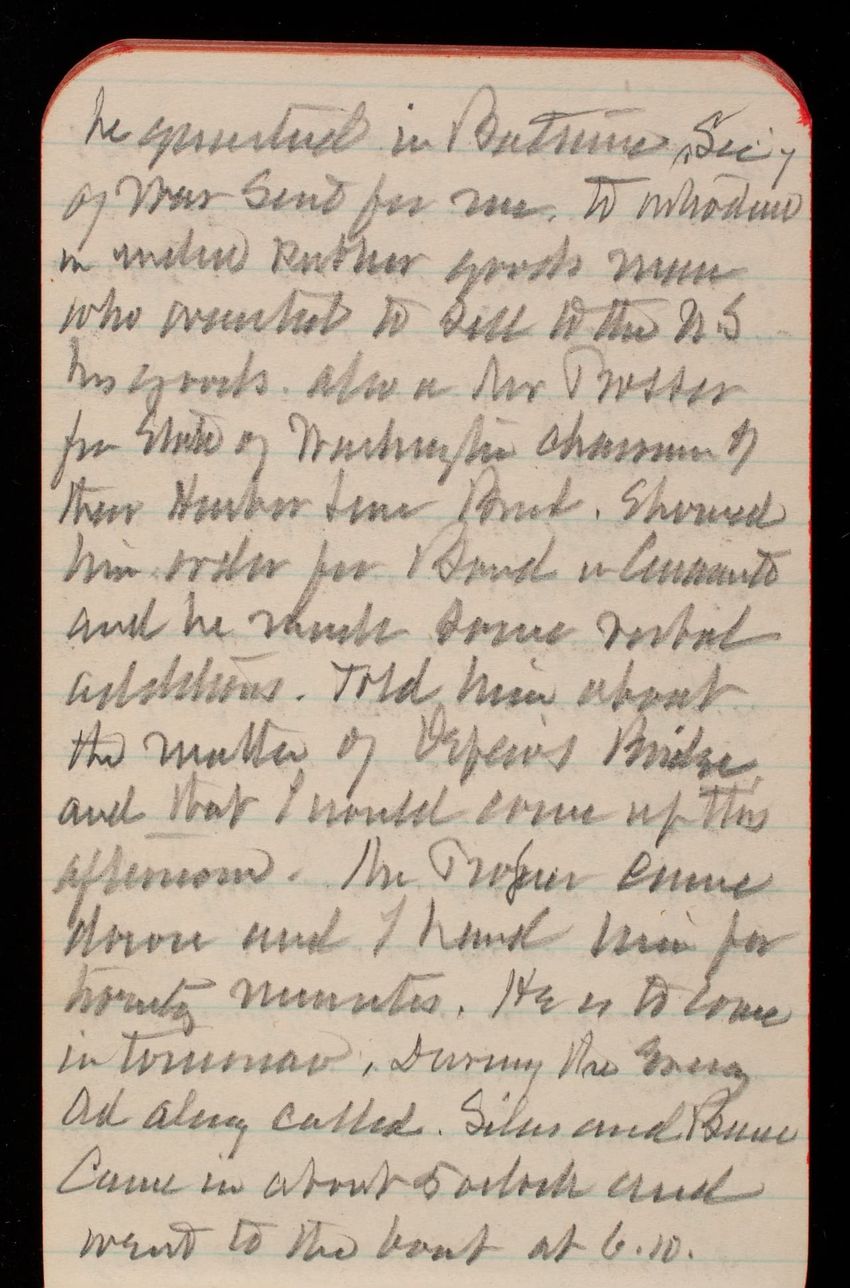 he in Baltimore, Sec'y
of War Sent for me. to introduce
rubber goods man
who wanted to sell to the U.S
his goods. also a Mr Prosser
for State of Washington chairman of
their Harbor Line Board. Showed
him order for Board
and he made some verbal
additions. Told him about
the matter of Bridge,
and that I would come up this
afternoon. Mr Prosser came
down and I heard him for
twenty minutes. He is to come
in tomorrow. During the Evening
called. Silas and
Came in about 5 oclock and
went to the boat at 6.10.